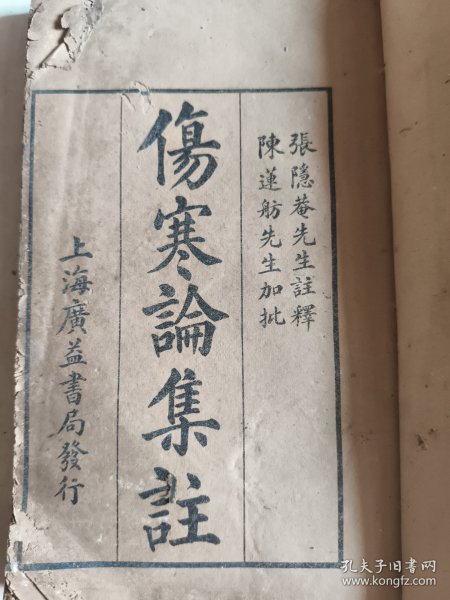 張隱菴先生註釋
陳蓮舫先生加批
傷寒論集註
上海廣益書局發行
孔夫子旧书网
www.kongfz.com